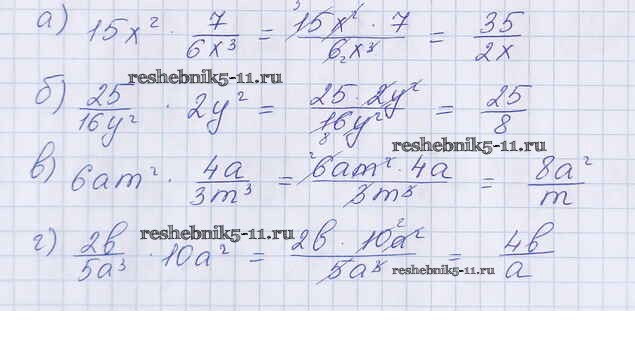 а) 15x² · 7/6x³ = 15x² · 7/6x³ = 35/2x
reshebnik5-11.ru
б) 25/16y² · 2y² = 25 · 2y²/16y² = 25/8
reshebnik5-11.ru
в) 6am² · 4a/3m³ = 6am² · 4a/3m³ = 8a²/m
reshebnik5-11.ru
г) 2b/5a³ · 10a² = 2b · 10a²/5a³ = 4b/a
reshebnik5-11.ru